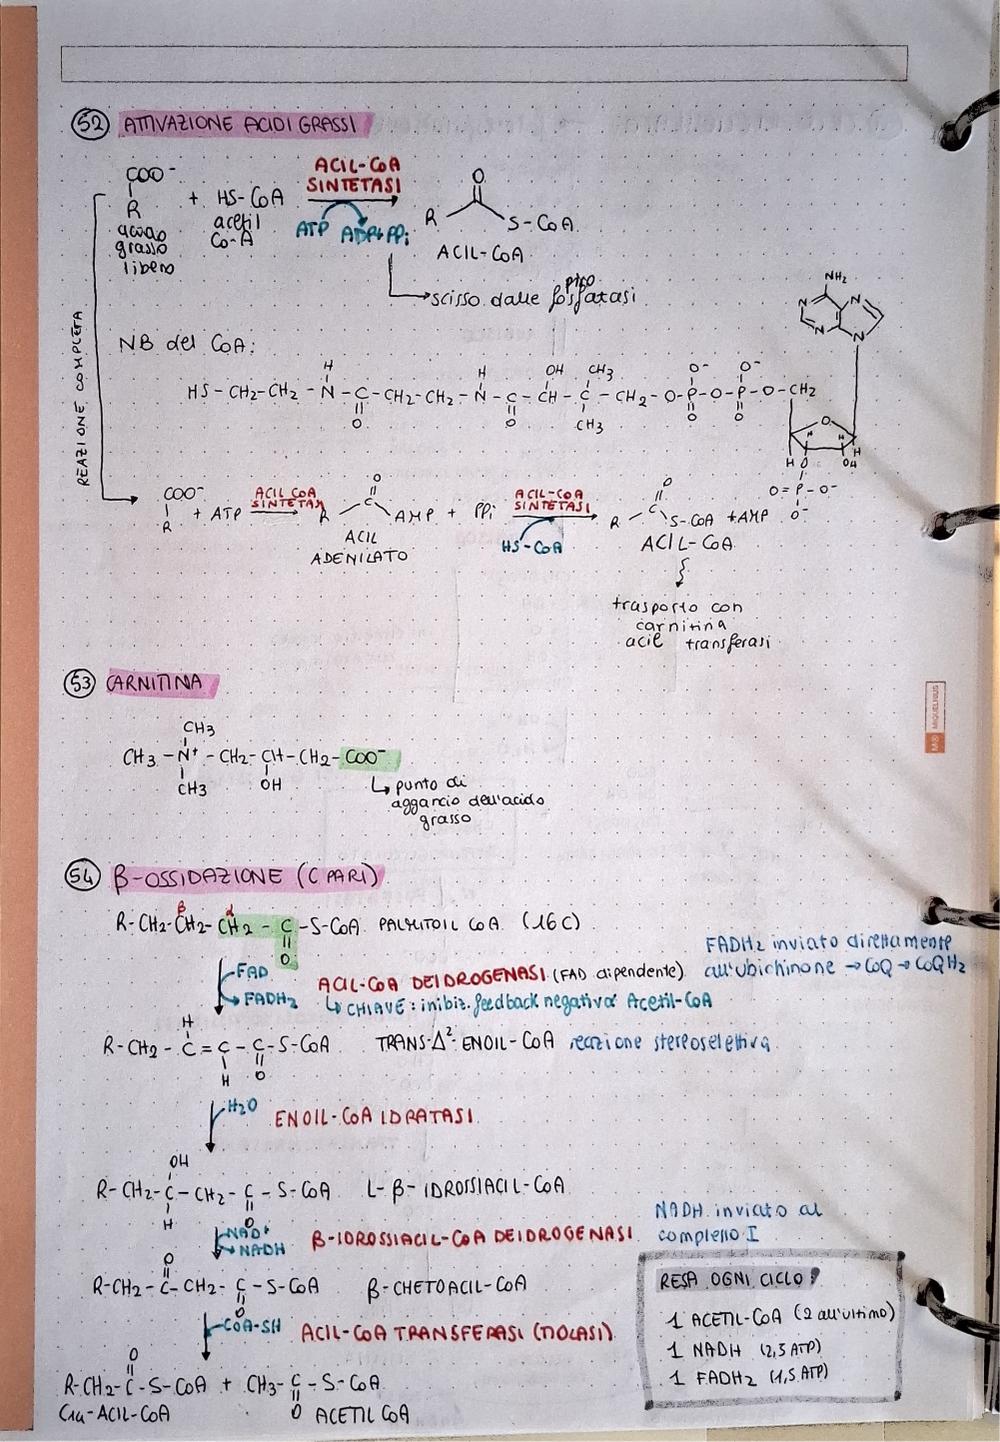 52 ATTIVAZIONE ACIDI GRASSI
COO⁻
R
acido
grasso
libero
+ HS-CoA
acetil
Co-A
ACIL-CoA
SINTETASI
ATP ADP+PPi
O
R S-CoA
ACIL-CoA
scisso dalle fosfatasi
piro
REAZIONE COMPLETA
NB del CoA:
NH₂
N N
N N
H H OH CH₃ O⁻ O⁻
HS-CH₂-CH₂-N-C-CH₂-CH₂-N-C-CH-C-CH₂-O-P-O-P-O-CH₂
O O CH₃ O O
O
H H H
H O OH
O=P-O⁻
O⁻
COO⁻
R
+ ATP
ACIL CoA
SINTETASI
O
R C AMP + PPi
ACIL
ADENILATO
ACIL-CoA
SINTETASI
HS-CoA
O
R C S-CoA + AMP
ACIL-CoA
trasporto con
carnitina
acil transferasi
53 CARNITINA
CH₃
CH₃-N⁺-CH₂-CH-CH₂-COO⁻
CH₃ OH
↳ punto di
aggancio dell'acido
grasso
MIQUELRIUS
54 β-OSSIDAZIONE (C PARI)
β α
R-CH₂-CH₂-CH₂-C-S-CoA PALMITOIL CoA (16C)
O
FAD
FADH₂
ACIL-CoA DEIDROGENASI (FAD dipendente)
↳ CHIAVE: inibiz. feedback negativo Acetil-CoA
FADH₂ inviato direttamente
all'ubichinone → CoQ → CoQH₂
H
R-CH₂-C=C-C-S-CoA TRANS-Δ²-ENOIL-CoA reazione stereoselettiva
H O
H₂O ENOIL-CoA IDRATASI
OH
R-CH₂-C-CH₂-C-S-CoA L-β-IDROSSIACIL-CoA
H O
NAD⁺
NADH
β-IDROSSIACIL-CoA DEIDROGENASI
NADH inviato al
complesso I
O
R-CH₂-C-CH₂-C-S-CoA β-CHETOACIL-CoA
O
CoA-SH ACIL-CoA TRANSFERASI (TIOLASI)
O
R-CH₂-C-S-CoA + CH₃-C-S-CoA
C14-ACIL-CoA O ACETIL CoA
RESA OGNI CICLO:
1 ACETIL-CoA (2 all'ultimo)
1 NADH (2,5 ATP)
1 FADH₂ (1,5 ATP)